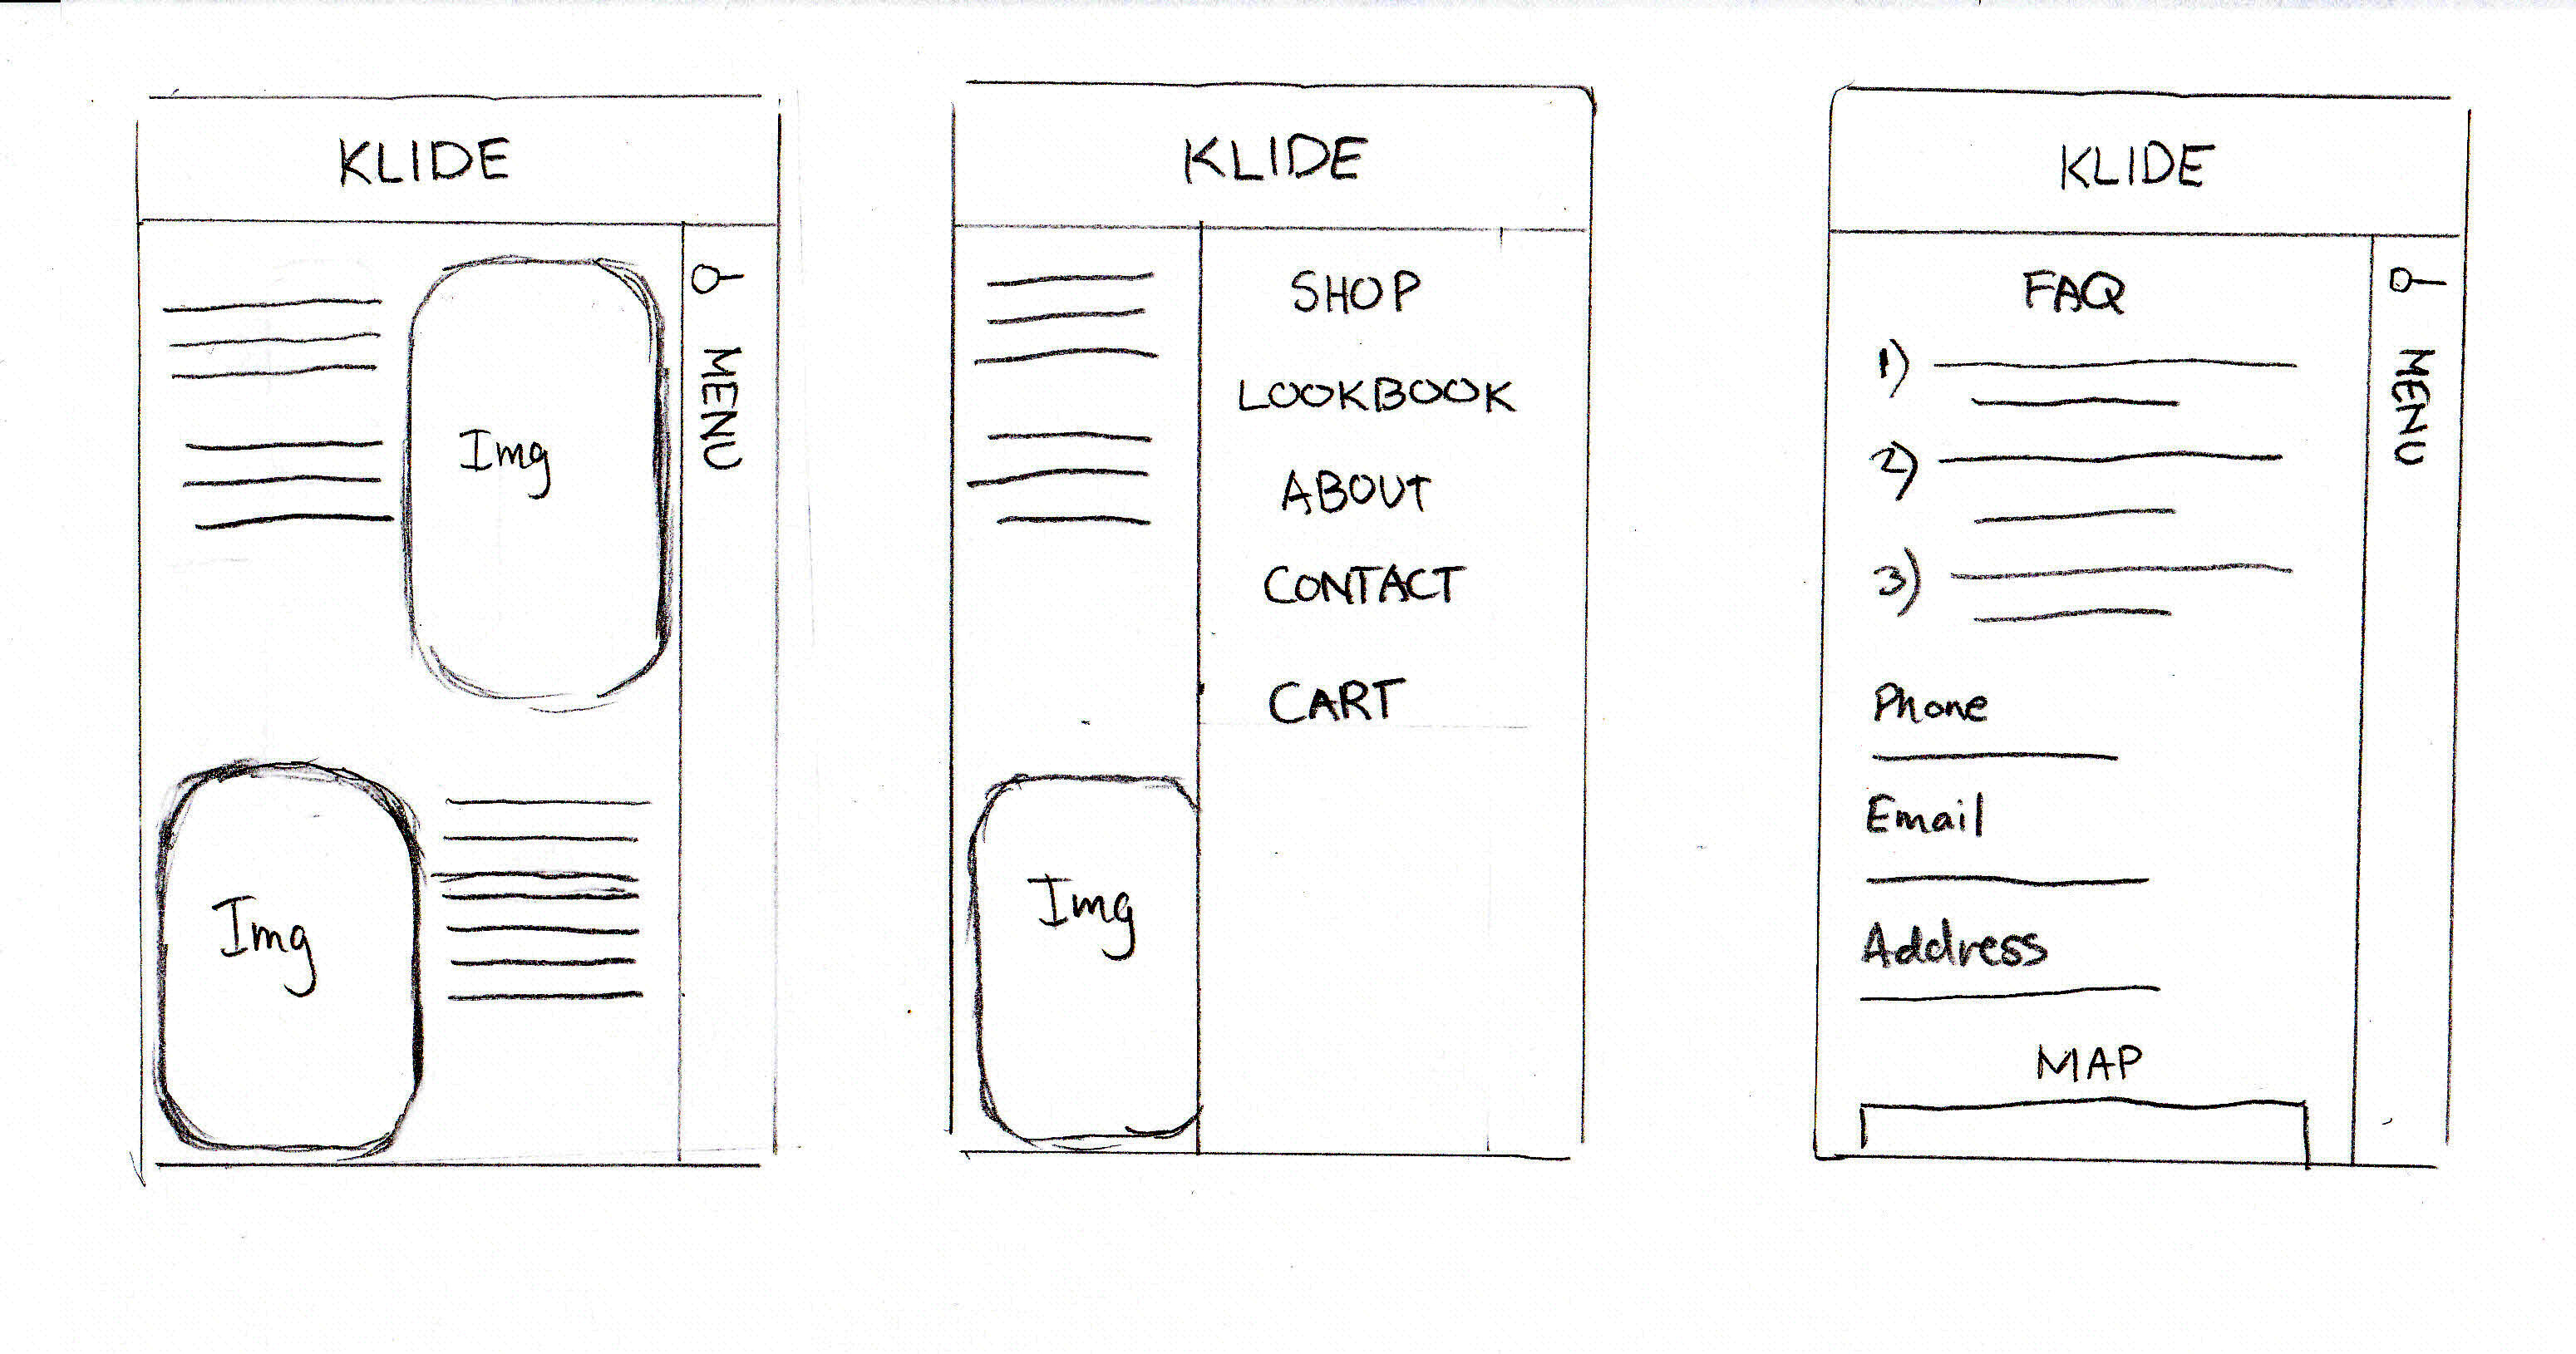 KLIDE
Img
MENU
Img
KLIDE
SHOP
LOOKBOOK
ABOUT
CONTACT
CART
Img
KLIDE
FAQ
1)
2)
3)
MENU
Phone
Email
Address
MAP